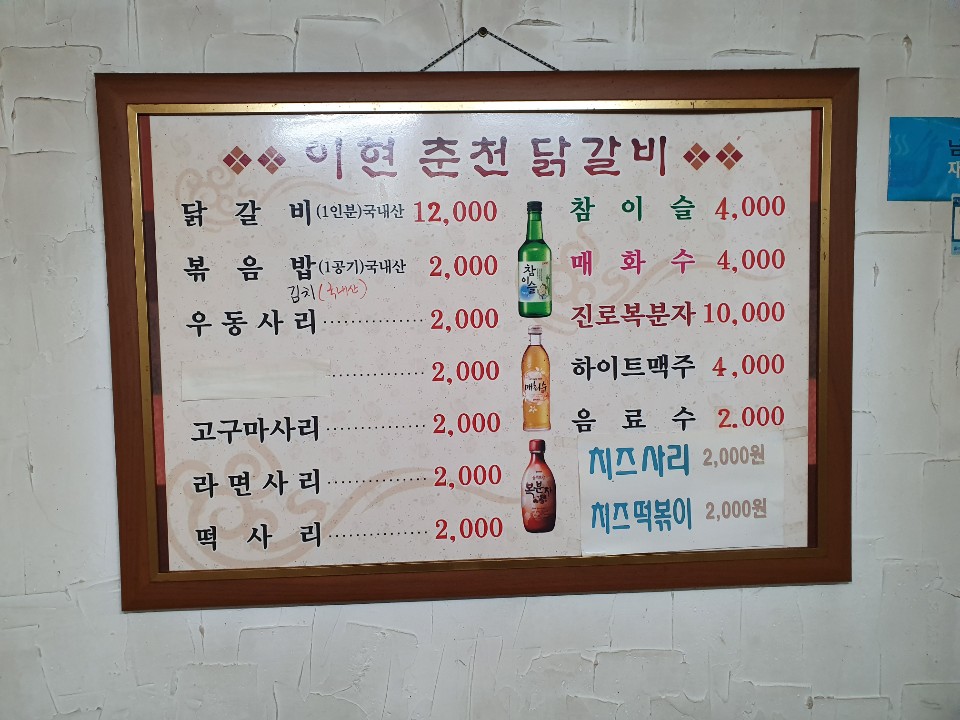 이현 춘천 닭갈비
닭 갈 비 (1인분)국내산 12,000
볶 음 밥 (1공기)국내산 2,000
김치 (국내산)
우동사리 ·············· 2,000
·············· 2,000
고구마사리 ·············· 2,000
라면사리 ·············· 2,000
떡 사 리 ·············· 2,000
참 이 슬 4,000
매 화 수 4,000
진로복분자 10,000
하이트맥주 4,000
음 료 수 2.000
치즈사리 2,000원
치즈떡볶이 2,000원
참이슬
매화수
복분자